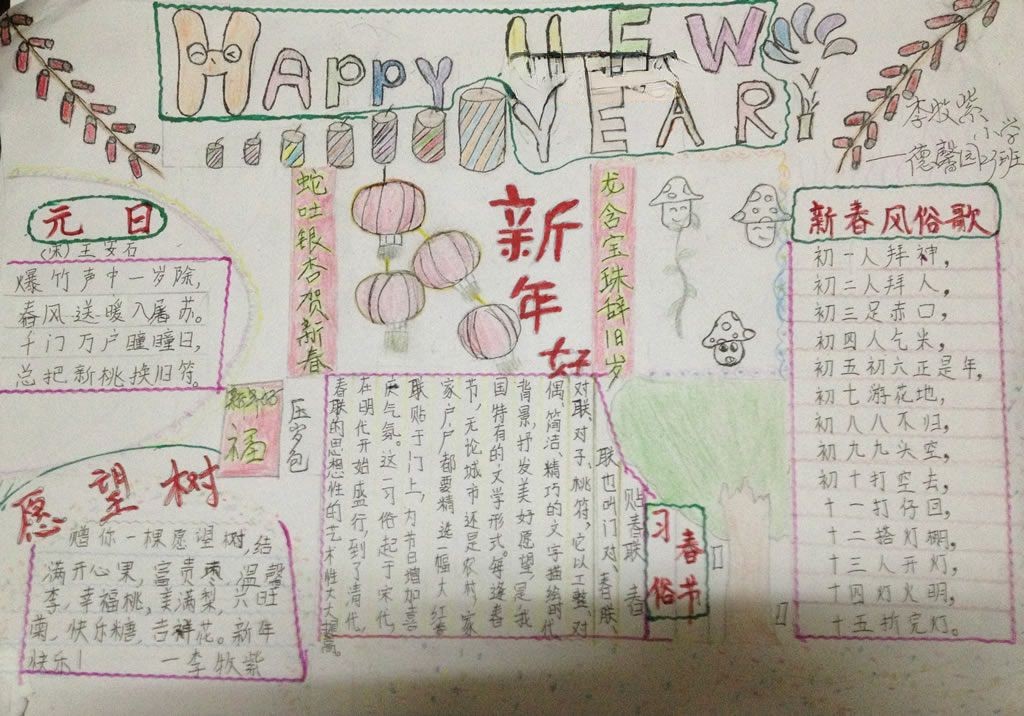 HAPPY NEW
YEAR
李牧紫
小学
一德馨园23班
元日
(宋)王安石
爆竹声中一岁除,
春风送暖入屠苏。
千门万户瞳瞳日,
总把新桃换旧符。
蛇吐银杏贺新春
新年好
龙含宝珠辞旧岁
新年好
福
压岁包
愿望树
赠你一棵愿望树,结
满开心果,富贵枣,温馨
李,幸福桃,美满梨,兴旺
菊,快乐糖,吉祥花。新年
快乐!
一李牧紫
贴春联 春
联也叫门对、春联、
对联、对子、桃符,它以工整、对
偶、简洁、精巧的文字描绘时代
背景,抒发美好愿望,是我
国特有的文学形式。每逢春
节,无论城市还是农村,家
家户户都要精选一幅大红春
联贴于门上,为节日增加喜
庆气氛。这一习俗起于宋代,
在明代开始盛行,到了清代,
春联的思想性的艺术性大大提高。
春节
习俗
新春风俗歌
初一人拜神,
初二人拜人,
初三足赤口,
初四人乞米,
初五初六正是年,
初七游花地,
初八八不归,
初九九头空,
初十打空去,
十一打仔回,
十二搭灯棚,
十三人开灯,
十四灯火明,
十五折完灯。